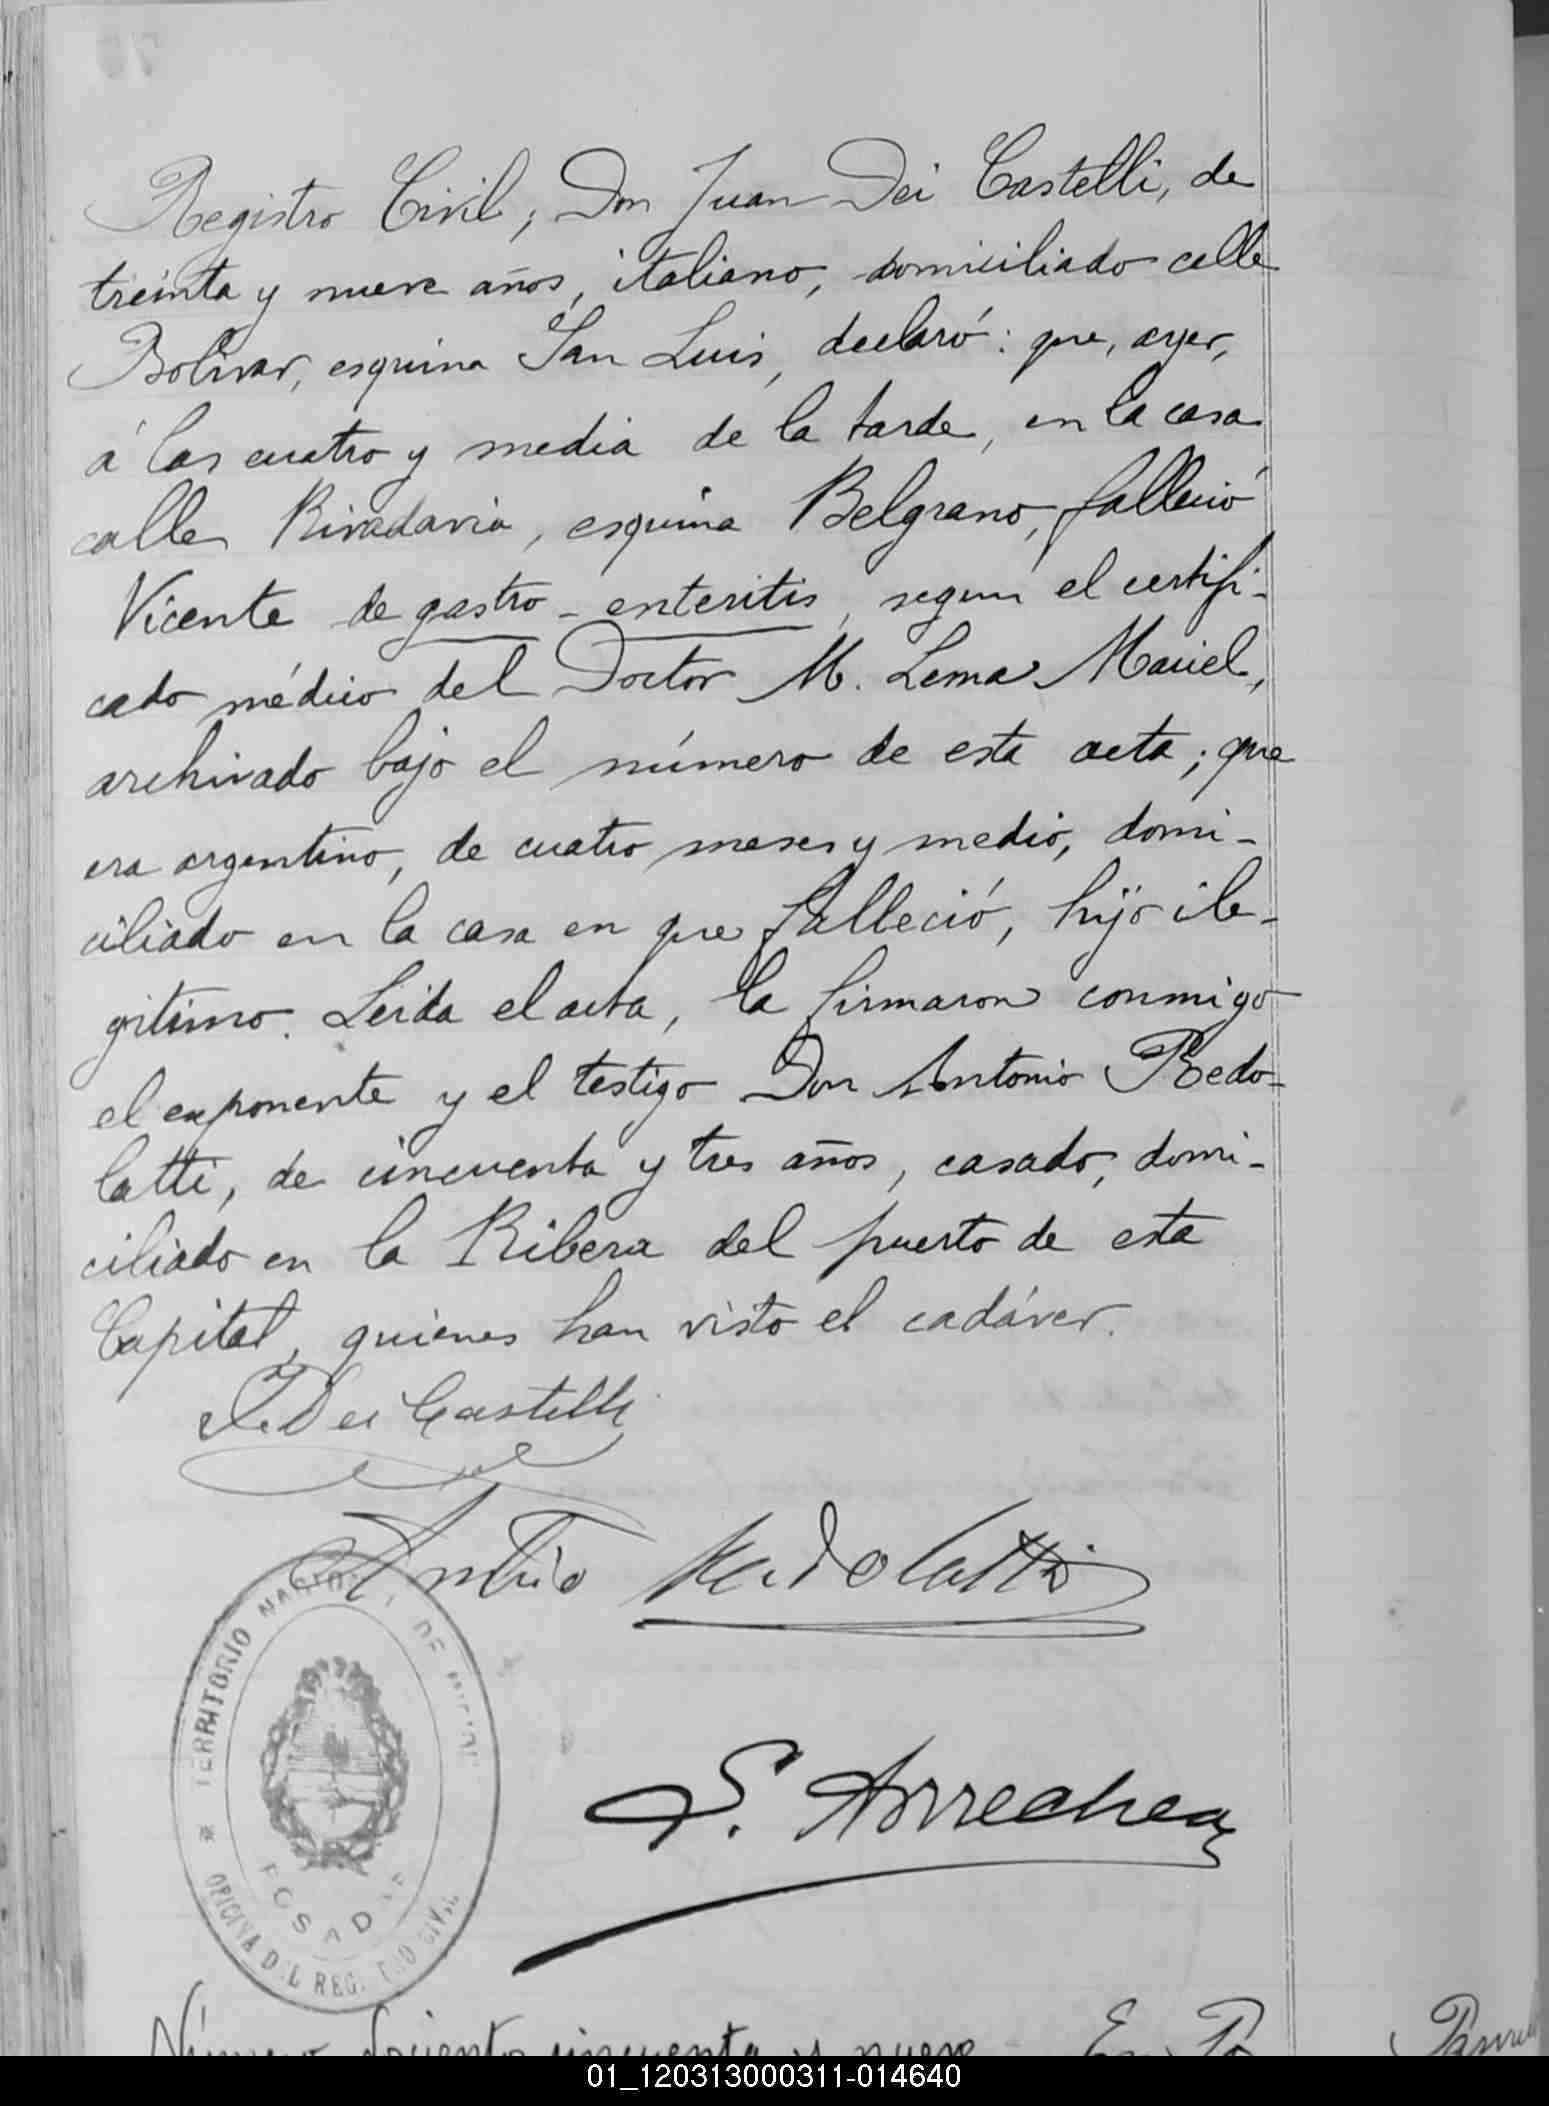 Registro Civil, Don Juan Dei Castelli, de
treinta y nueve años, italiano, domiciliado calle
Bolivar, esquina San Luis, declaró: que, ayer,
á las cuatro y media de la tarde, en la casa
calle Rivadavia, esquina Belgrano, falleció
Vicente de gastro-enteritis, segun el certifi-
cado médico del Doctor M. Lema Maciel,
archivado bajo el número de esta acta; que
era argentino, de cuatro meses y medio, domi-
ciliado en la casa en que falleció, hijo ile-
gitimo. Leida el acta, la firmaron conmigo
el exponente y el testigo Don Antonio Redo-
latti, de cincuenta y tres años, casado, domi-
ciliado en la Ribera del puerto de esta
Capital, quienes han visto el cadáver.
J. Dei Castelli
Antonio Redolatti
TERRITORIO NACIONAL DE MISIONES
POSADAS
OFICINA DEL REGISTRO CIVIL
S. Arrechea
Número doscientos cincuenta y nueve En Po
01_120313000311-014640